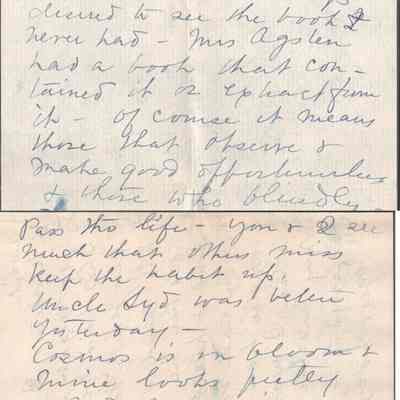 desired to see the book I
never had - Mrs Agsten
had a book that con-
tained it or extract from
it - of course it means
those that observe &
make good opportunities
& those who blindly
pass thro life - you & I see
much that others miss
keep the habit up.
Uncle Syd was better
yesterday -
Cosmos is in bloom &
mine looks pretty